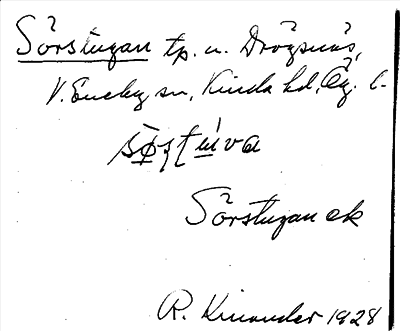 Sörstugan tp. u. Drögsnäs,
V. Eneby sn, Kinda hd, Ög. l.
Sörstugan ek
R. Kinander 1928